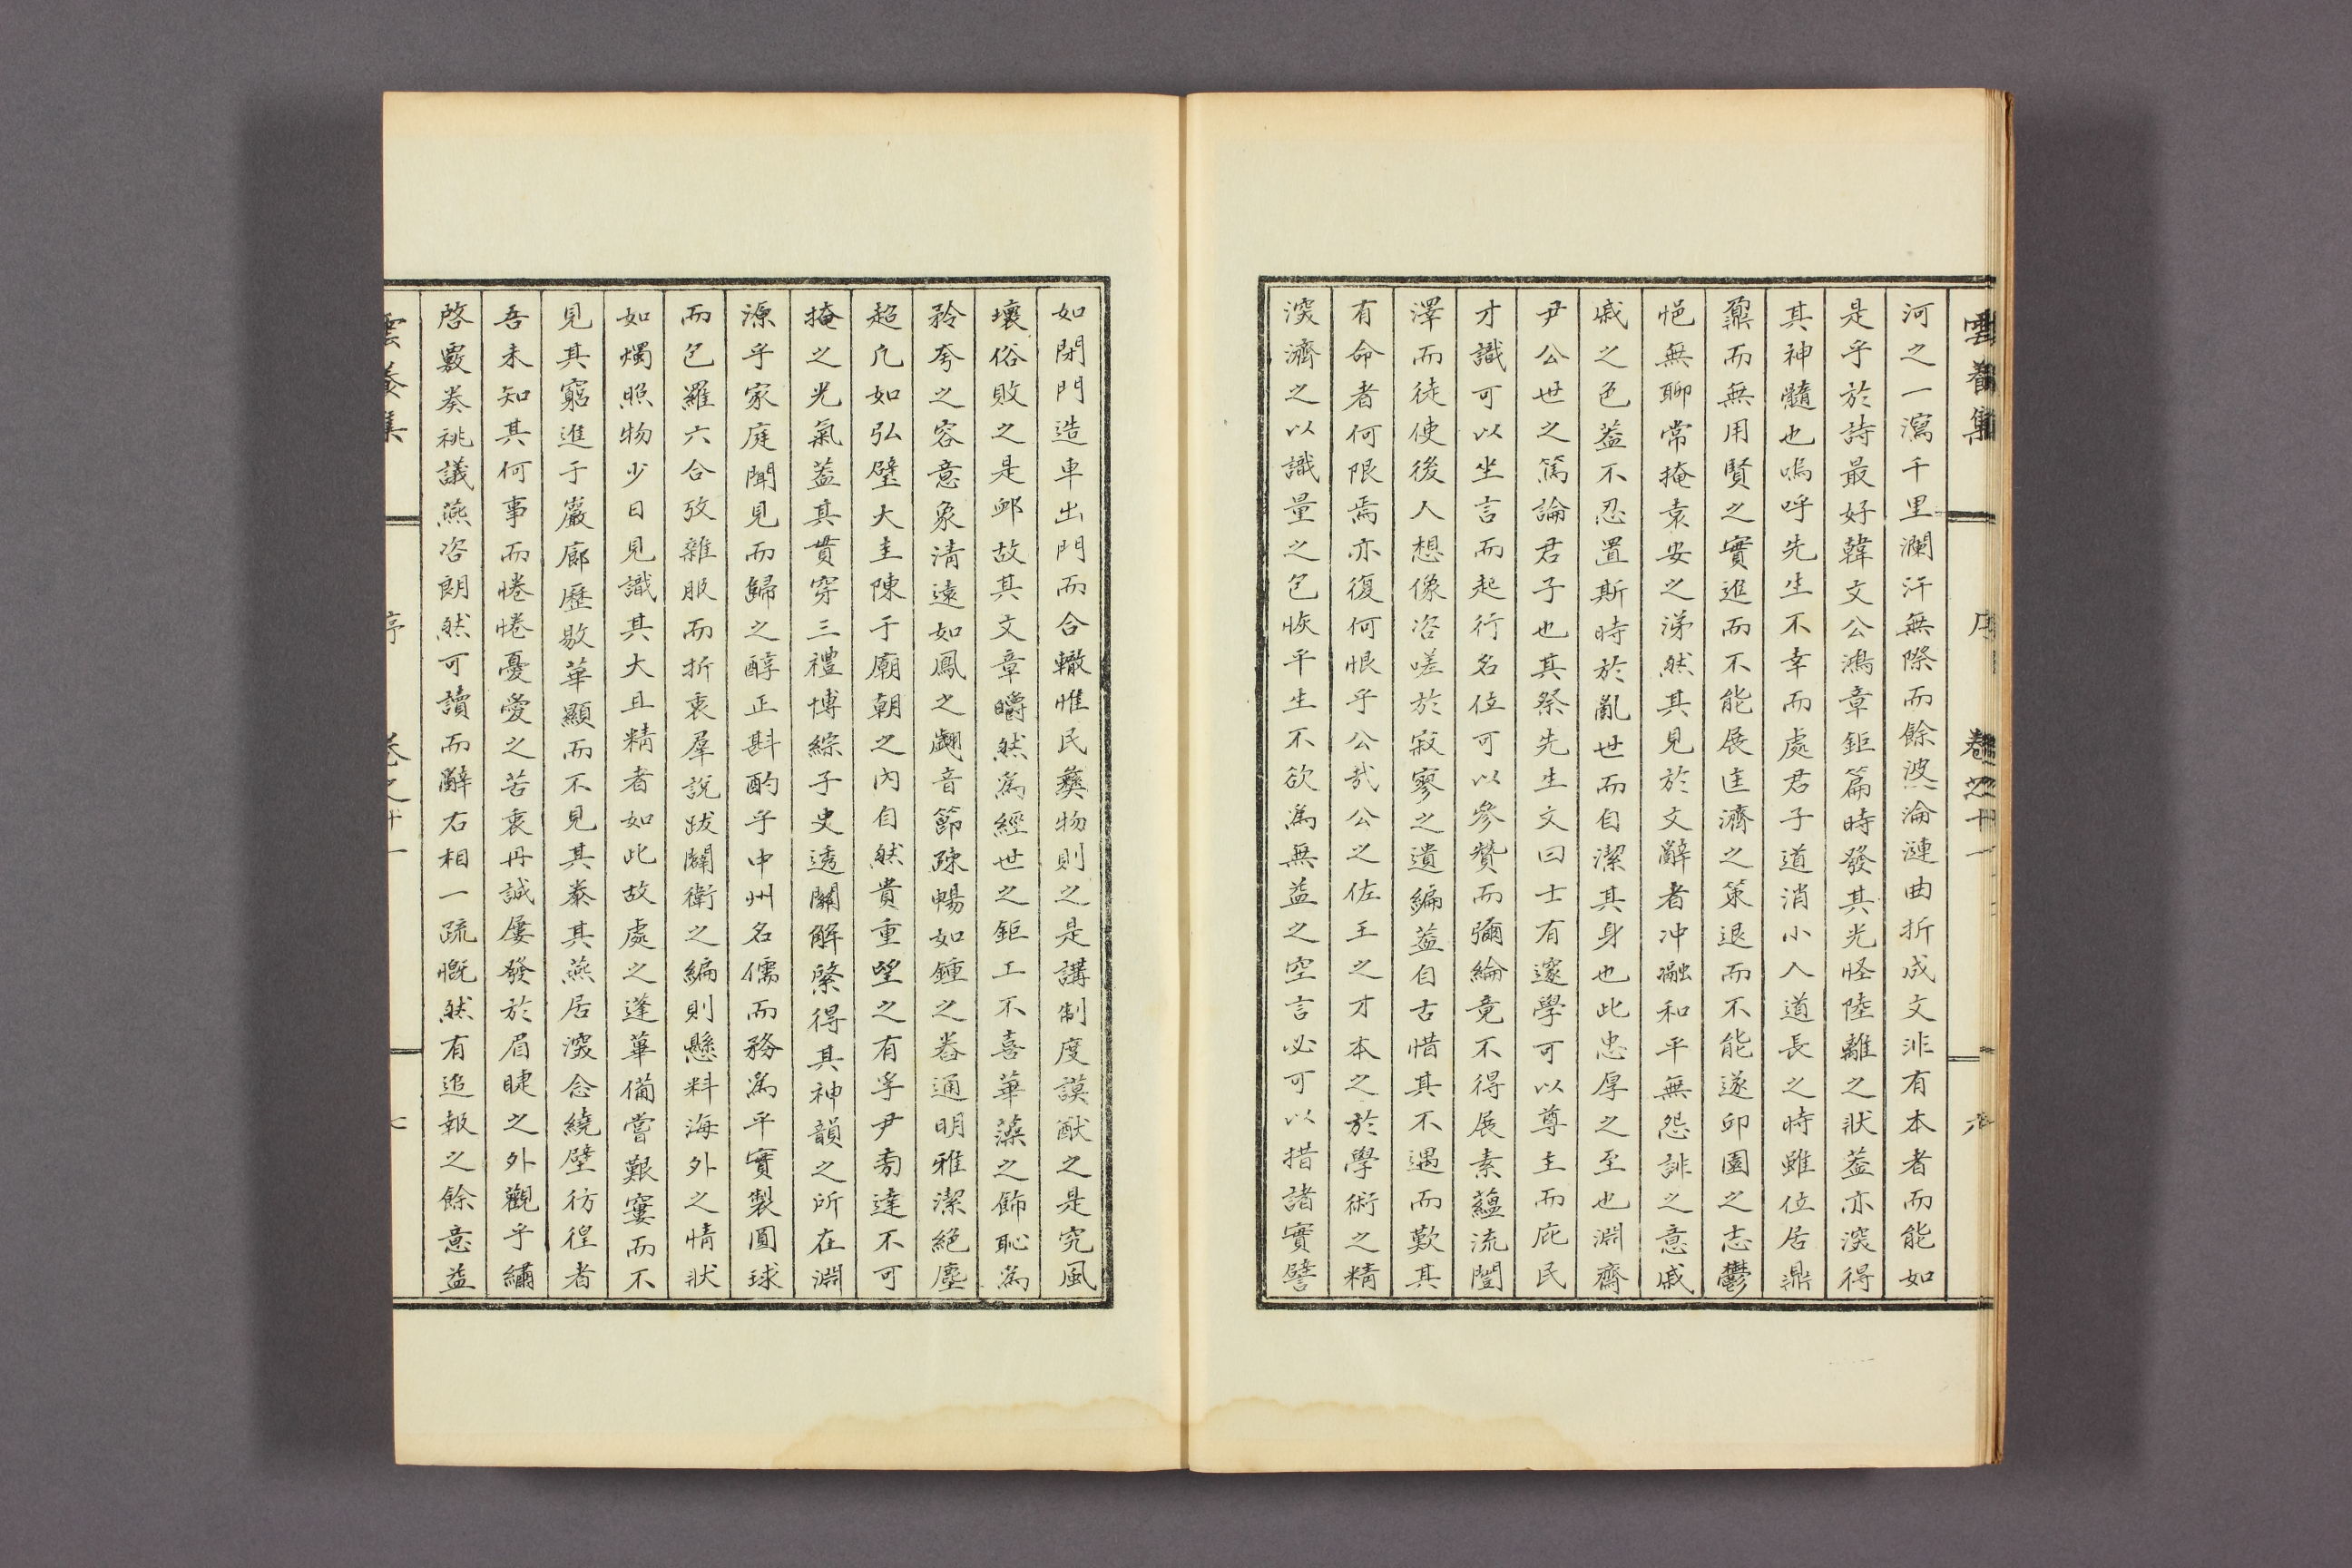 雲養集 序 卷之十一
河之一瀉千里瀾汗無際而餘波淪漣曲折成文非有本者而能如
是乎於詩最好韓文公鴻章鉅篇時發其光怪陸離之狀蓋亦深得
其神髓也嗚呼先生不幸而處君子道消小人道長之時雖位居鼎
鼐而無用賢之實進而不能展匡濟之策退而不能遂邱園之志鬱
悒無聊常掩袁安之涕然其見於文辭者冲瀜和平無怨誹之意戚
戚之色蓋不忍置斯時於亂世而自潔其身也此忠厚之至也淵齋
尹公世之篤論君子也其祭先生文曰士有邃學可以尊主而庇民
才識可以坐言而起行名位可以參贊而彌綸竟不得展素蘊流闓
澤而徒使後人想像咨嗟於寂寥之遺編蓋自古惜其不遇而歎其
有命者何限焉亦復何恨乎公哉公之佐王之才本之於學術之精
深濟之以識量之包恢平生不欲爲無益之空言必可以措諸實譬
如閉門造車出門而合轍惟民彝物則之是講制度謨猷之是究風
壞俗敗之是卹故其文章皭然爲經世之鉅工不喜華藻之飾恥爲
矜夸之容意象清遠如鳳之翽音節疎暢如鍾之㪺通明雅潔絕塵
超凡如弘璧大圭陳于廟朝之內自然貴重望之有孚尹旁達不可
掩之光氣蓋其貫穿三禮博綜子史透關解綮得其神韻之所在淵
源乎家庭聞見而歸之醇正斟酌乎中州名儒而務爲平實製圓球
而包羅六合攷雜服而折衷羣說跋闢衛之編則懸料海外之情狀
如燭照物少日見識其大且精者如此故處之蓬蓽備嘗艱窶而不
見其窮進于巖廊歷敭華顯而不見其泰其燕居深念繞壁彷徨者
吾未知其何事而惓惓憂愛之苦衷丹誠屢發於眉睫之外觀乎繡
啓覈奏祧議燕咨朗然可讀而辭右相一疏慨然有追報之餘意益
雲養集 序 卷之十一 七